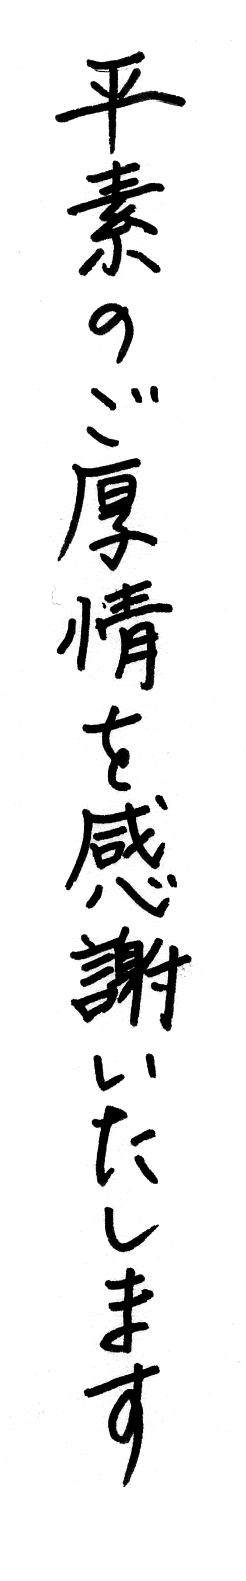 平素のご厚情を感謝いたします